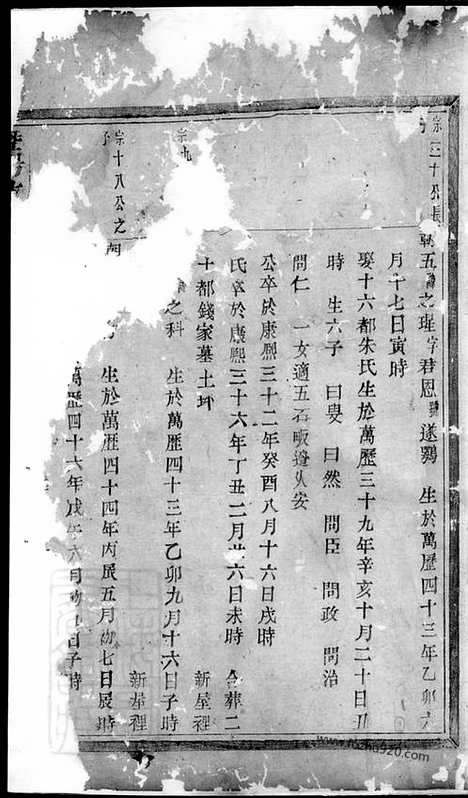 宗三十公長
朝五 之瑆字君恩號遂鷄 生於萬歷四十三年乙卯六
月十七日寅時
娶十六都朱氏生於萬歷三十九年辛亥十月二十日丑
時 生六子 曰叟 曰然 問臣 問政 問治
問仁 一女適五石畈邉火安
公卒於康熙三十二年癸酉八月十六日戌時
氏卒於康熙三十六年丁丑二月廿六日未時 合葬二
十都錢家墓土坪 新屋裡
宗九
之科 生於萬歷四十三年乙卯九月十六日子時
新屋裡
宗十八公之
子
生於萬歷四十四年丙辰五月初七日辰時
萬歷四十六年戊午六月初 日子時